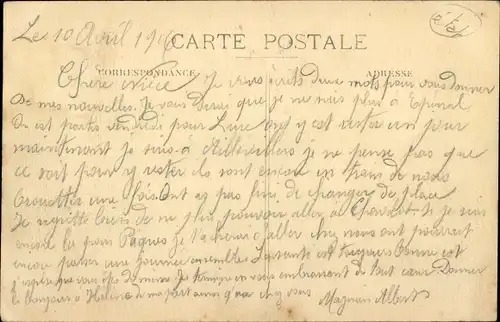 Le 10 Avril 19
CARTE POSTALE
CORRESPONDANCE
ADRESSE
Chère nièce Je vous écrits deux mots pour vous donner
de mes nouvelles. Je vous dirai que je ne suis plus à Epinal
On est partis vendredi pour Lure on y est resté un jour
maintenant je suis a je ne pense pas que
ce soit pour y rester ils sont encore en train de nous
une fois. Ont as pas fini de changer de place
Je regrette de ne plus pouvoir aller a si je suis
encore la pour Pâques je d'aller nous ont pourrait
encore passer une journée ensemble La santé est toujours bonne et
j'espère que vous de même Je termine en vous embrassant de tout cœur Donner
le bonjour à Hélène de ma part ainsi que chez vous Magnien Albert